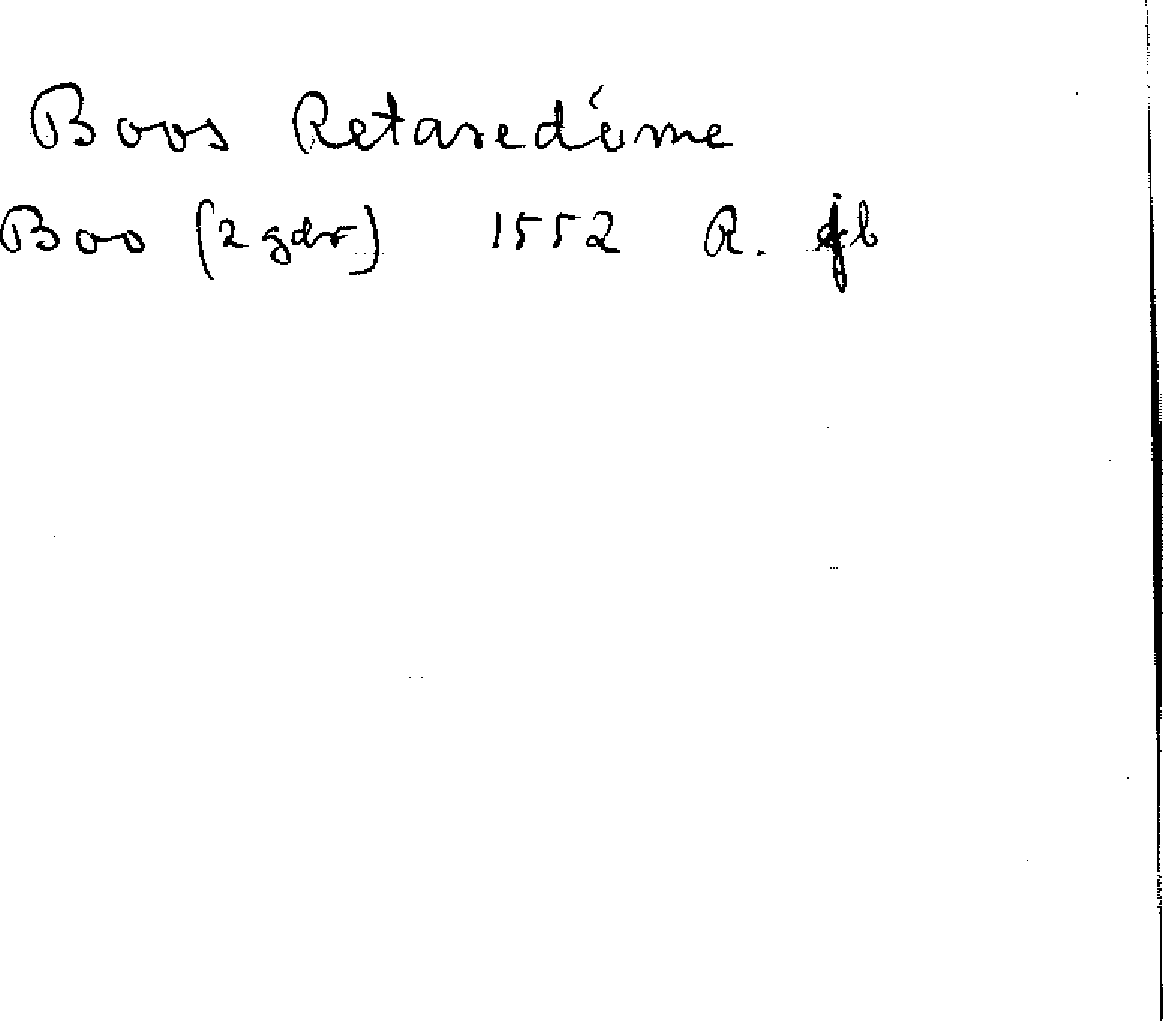 Boos Retaredúme
Boo (2 gdr) 1552 R. jb